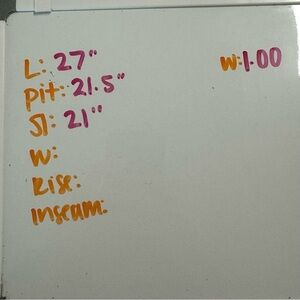 L: 27"
Pit: 21.5"
Sl: 21"
W:
Rise:
Inseam:
W: 1.00